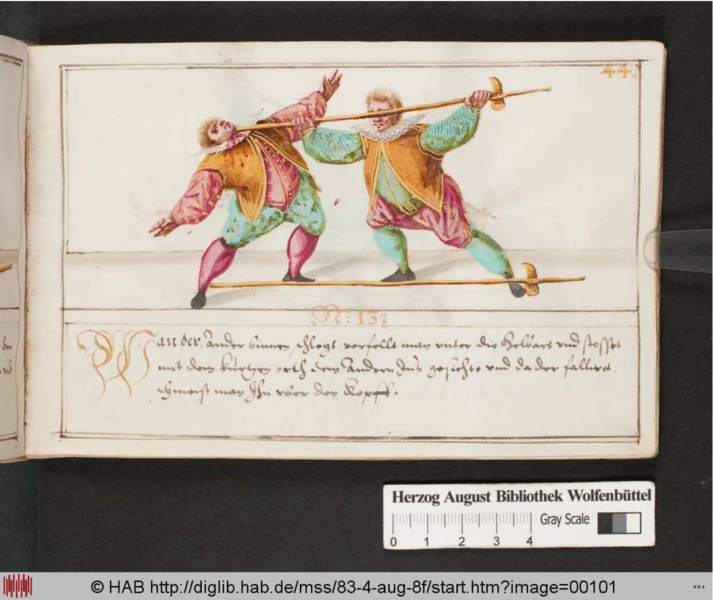 44.
No: 13:
Wan der Ander binnen schlegt verfellt man unter die Helbart und stosset
mit dem kurtzen orth dem Andern Ins gesichte und da der
schmeist man Ihn uber den Kopff.
Herzog August Bibliothek Wolfenbüttel
Gray Scale
0 1 2 3 4
© HAB http://diglib.hab.de/mss/83-4-aug-8f/start.htm?image=00101